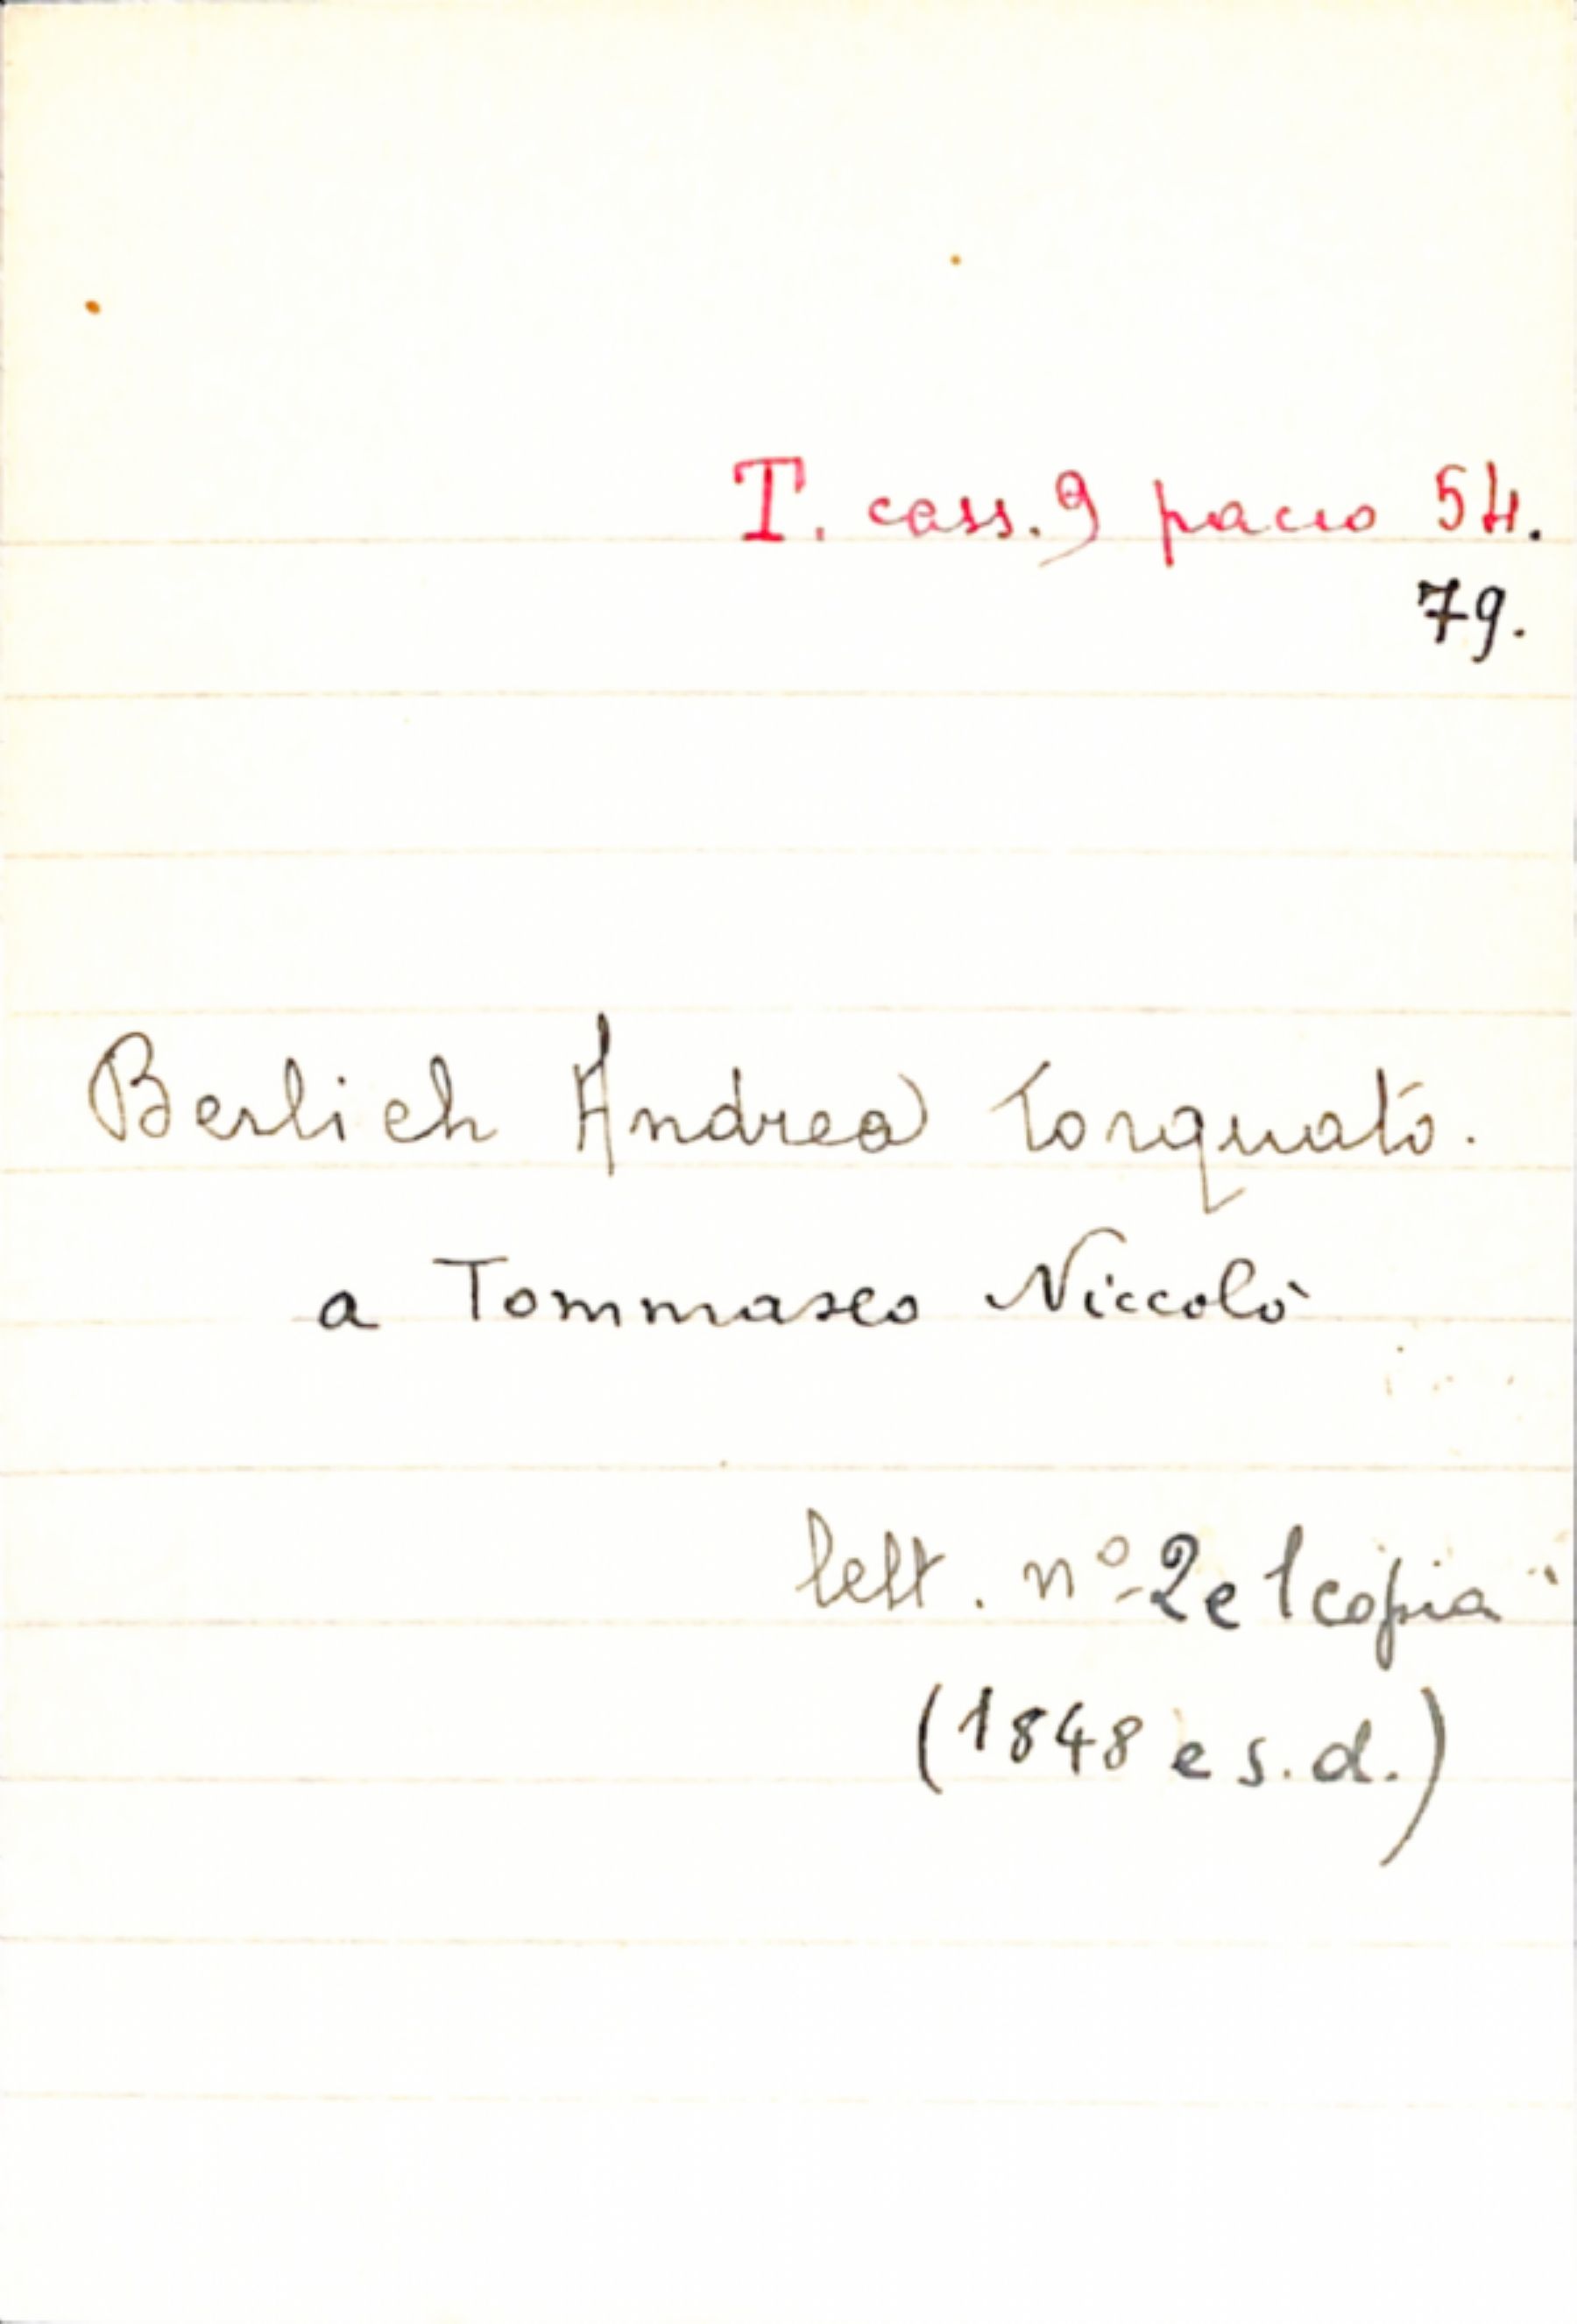 T. cass. 9 pacco 54.
79.
Berlich Andrea Torquato.
a Tommaseo Niccolò
lett. nº 2 e 1 copia
(1848 e s.d.)